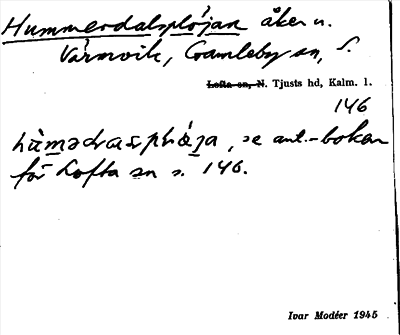 Hummerdalsplöjan åker u.
Värmvik, Gamleby sn, S.
Lofta sn, N. Tjusts hd, Kalm. l.
146
se ant.-boken
för Lofta sn s. 146.
Ivar Modéer 1945